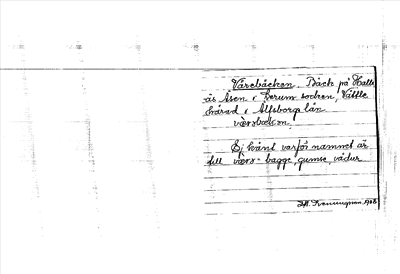 Värebäcken. Bäck på Halle
ås Åsen i Lerum socken, Vättle
härad i Älfsborgs län
värsbäkan.
Ej känt varför namnet är
till värs - bagge, gumse, vädur
1908